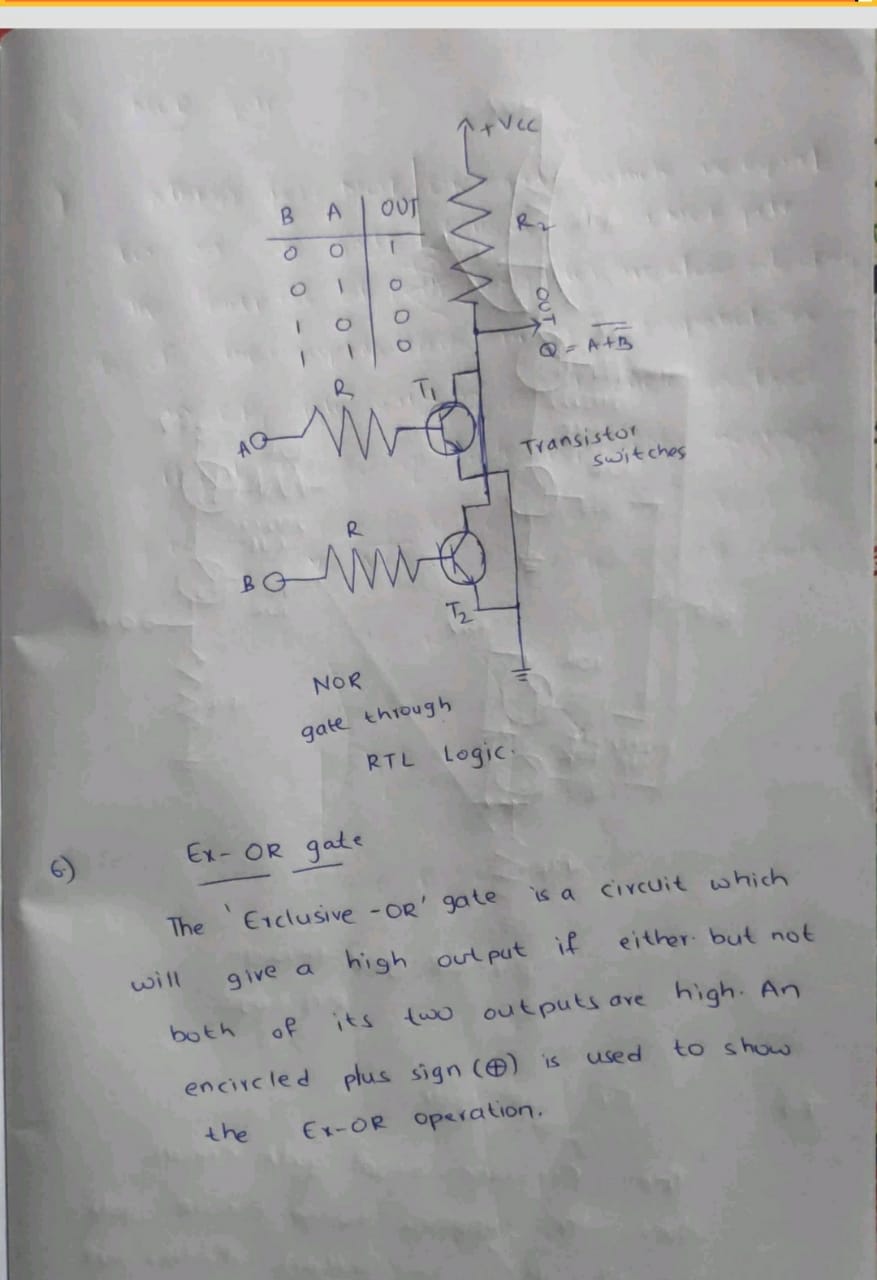 +Vcc
B A OUT
R2
0 0 1
0 1 0
1 0 0
1 1 0
OUT
Q = \overline{A+B}
R
T1
A
Transistor
switches
R
B
T2
NOR
gate through
RTL Logic.
6) Ex-OR gate
The 'Exclusive-OR' gate is a circuit which
will give a high output if either but not
both of its two outputs are high. An
encircled plus sign (⊕) is used to show
the Ex-OR operation.